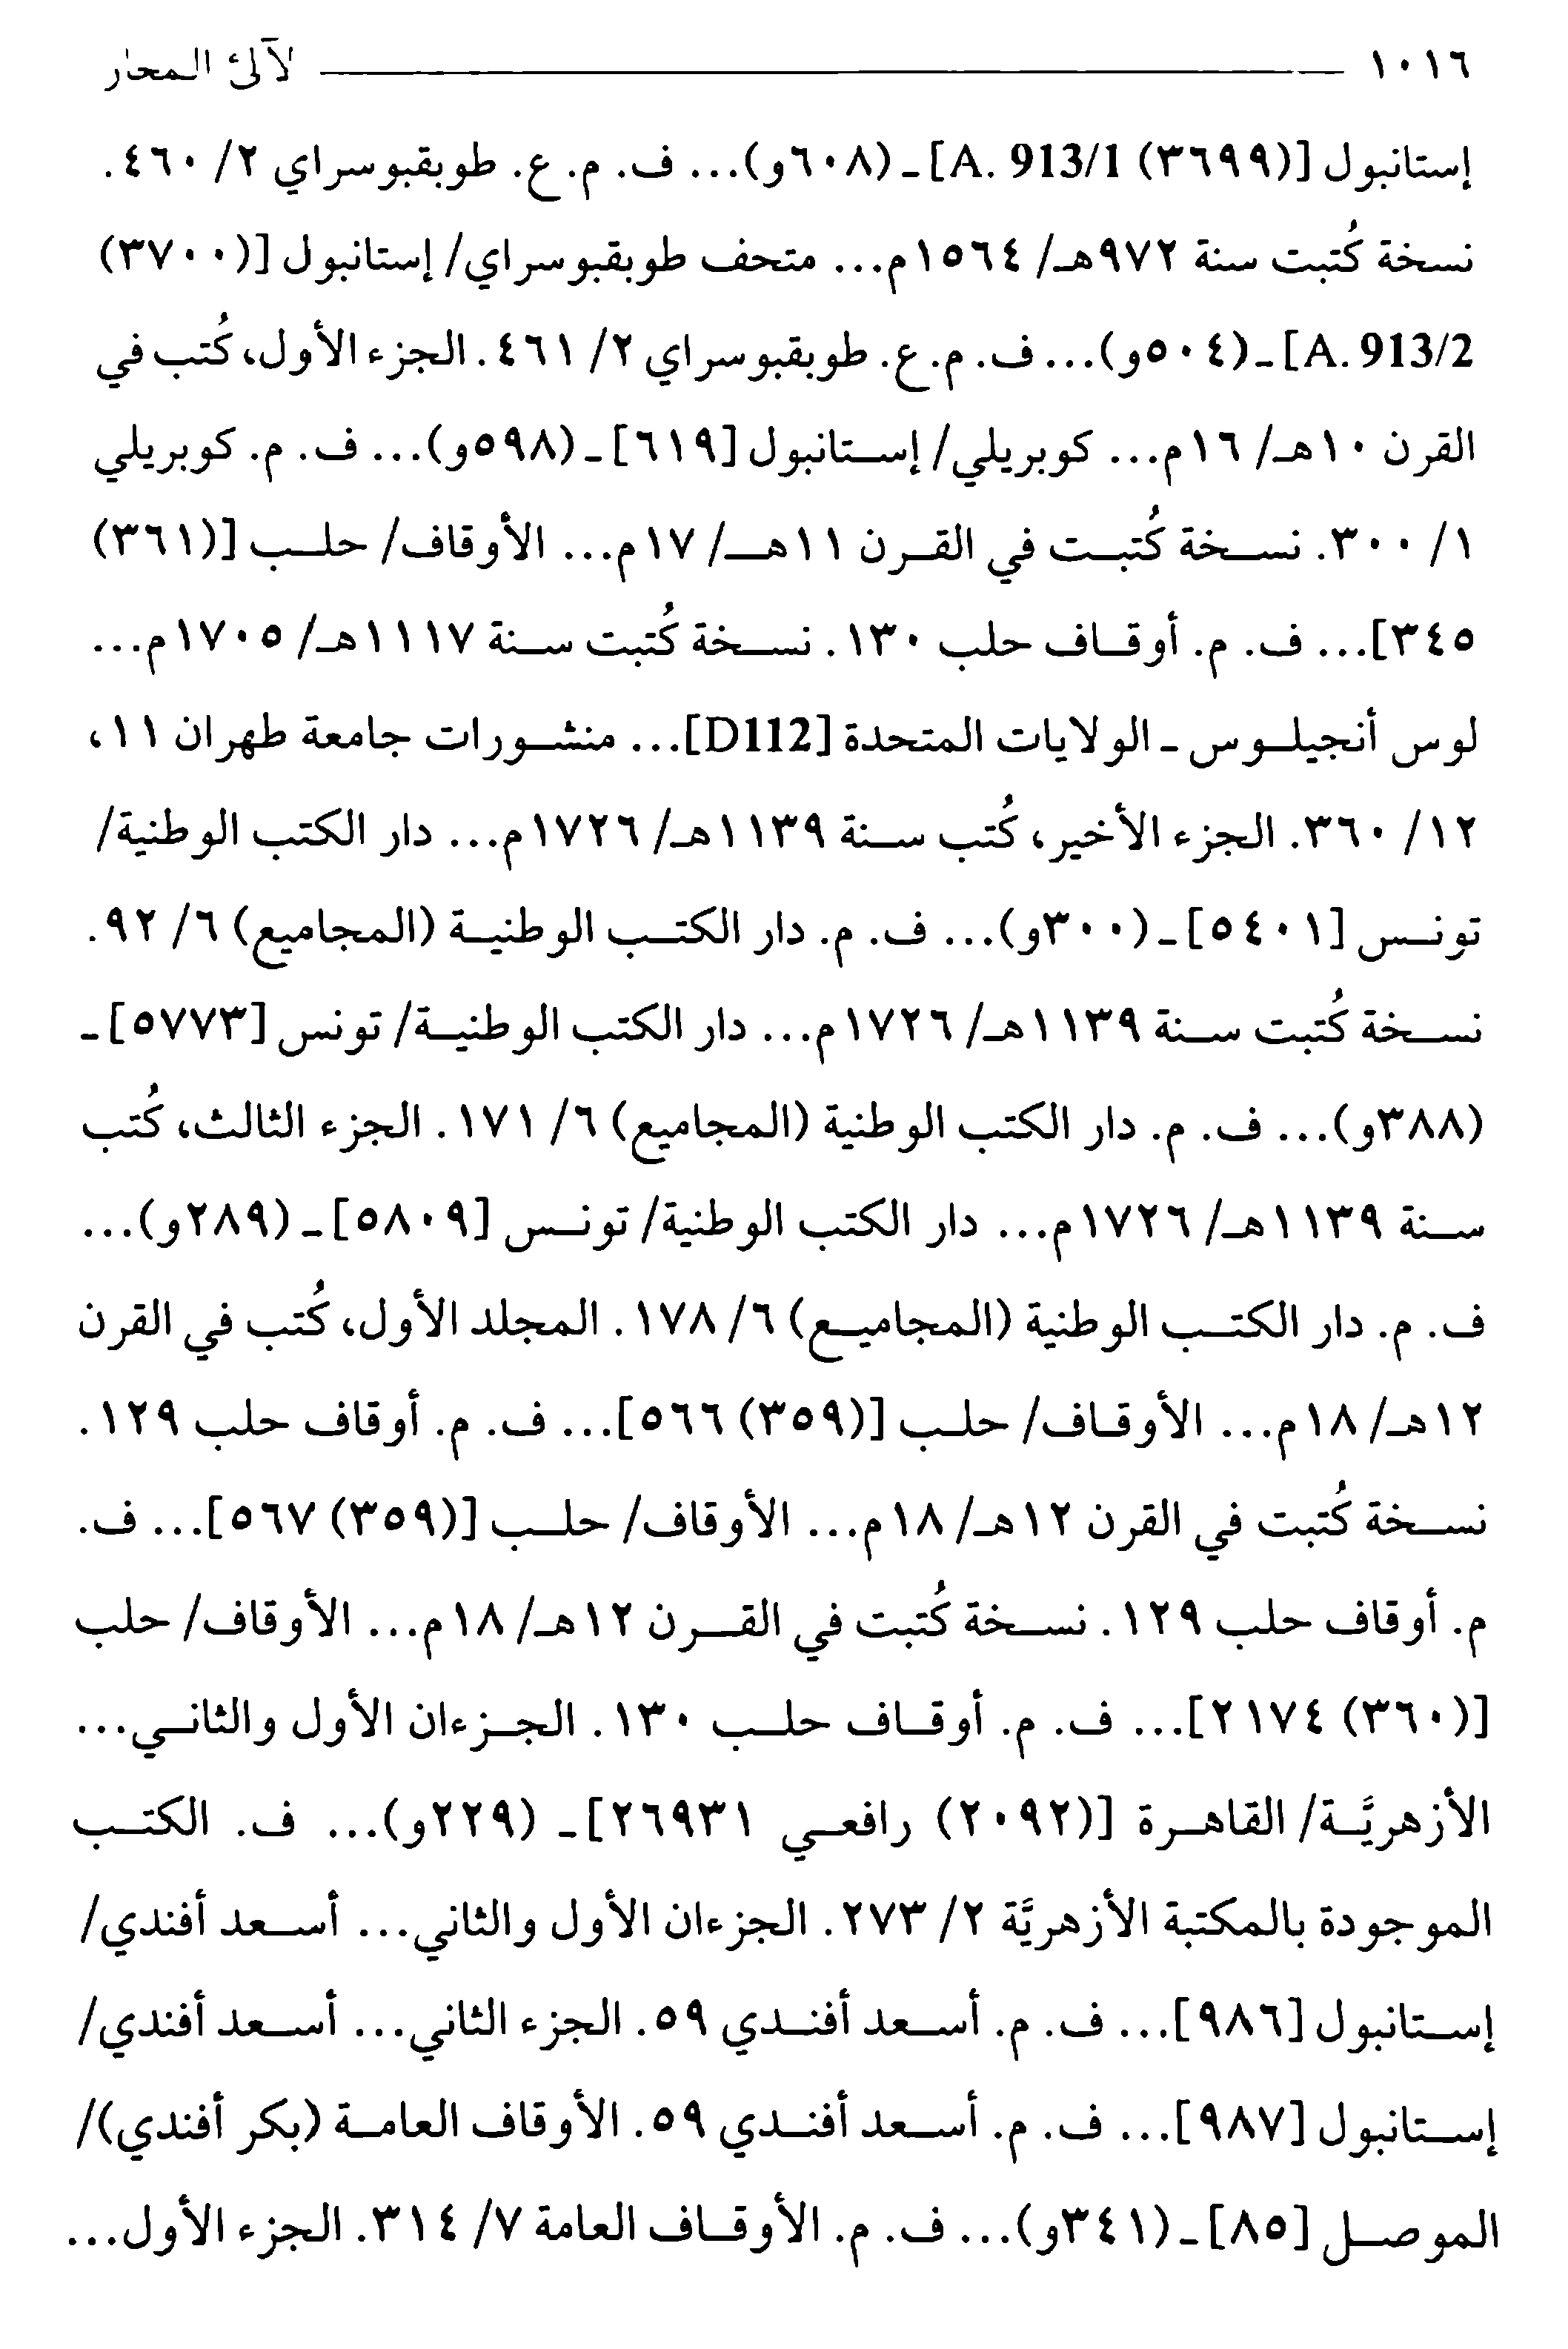 ١٠١٦ لآلئ المحار
إستانبول [(٣٦٩٩) A. 913/1] ـ (٦٠٨و)... ف. م. ع. طوبقبوسراي ٢/ ٤٦٠.
نسخة كُتبت سنة ٩٧٢هـ/ ١٥٦٤م... متحف طوبقبوسراي/ إستانبول [(٣٧٠٠)
A. 913/2] ـ (٥٠٤و)... ف. م. ع. طوبقبوسراي ٢/ ٤٦١. الجزء الأول، كُتب في
القرن ١٠هـ/ ١٦م... كوبريلي/ إستانبول [٦١٩] ـ (٥٩٨و)... ف. م. كوبريلي
١/ ٣٠٠. نسخة كُتبت في القرن ١١هـ/ ١٧م... الأوقاف/ حلب [(٣٦١)
٣٤٥]... ف. م. أوقاف حلب ١٣٠. نسخة كُتبت سنة ١١١٧هـ/ ١٧٠٥م...
لوس أنجيلوس ـ الولايات المتحدة [D112]... منشورات جامعة طهران ١١،
١٢/ ٣٦٠. الجزء الأخير، كُتب سنة ١١٣٩هـ/ ١٧٢٦م... دار الكتب الوطنية/
تونس [٥٤٠١] ـ (٣٠٠و)... ف. م. دار الكتب الوطنية (المجاميع) ٦/ ٩٢.
نسخة كُتبت سنة ١١٣٩هـ/ ١٧٢٦م... دار الكتب الوطنية/ تونس [٥٧٧٣] ـ
(٣٨٨و)... ف. م. دار الكتب الوطنية (المجاميع) ٦/ ١٧١. الجزء الثالث، كُتب
سنة ١١٣٩هـ/ ١٧٢٦م... دار الكتب الوطنية/ تونس [٥٨٠٩] ـ (٢٨٩و)...
ف. م. دار الكتب الوطنية (المجاميع) ٦/ ١٧٨. المجلد الأول، كُتب في القرن
١٢هـ/ ١٨م... الأوقاف/ حلب [(٣٥٩) ٥٦٦]... ف. م. أوقاف حلب ١٢٩.
نسخة كُتبت في القرن ١٢هـ/ ١٨م... الأوقاف/ حلب [(٣٥٩) ٥٦٧]... ف.
م. أوقاف حلب ١٢٩. نسخة كُتبت في القرن ١٢هـ/ ١٨م... الأوقاف/ حلب
[(٣٦٠) ٢١٧٤]... ف. م. أوقاف حلب ١٣٠. الجزءان الأول والثاني...
الأزهريَّة/ القاهرة [(٢٠٩٢) رافعي ٢٦٩٣١] ـ (٢٢٩و)... ف. الكتب
الموجودة بالمكتبة الأزهريَّة ٢/ ٢٧٣. الجزءان الأول والثاني... أسعد أفندي/
إستانبول [٩٨٦]... ف. م. أسعد أفندي ٥٩. الجزء الثاني... أسعد أفندي/
إستانبول [٩٨٧]... ف. م. أسعد أفندي ٥٩. الأوقاف العامة (بكر أفندي)/
الموصل [٨٥] ـ (٣٤١و)... ف. م. الأوقاف العامة ٧/ ٣١٤. الجزء الأول...